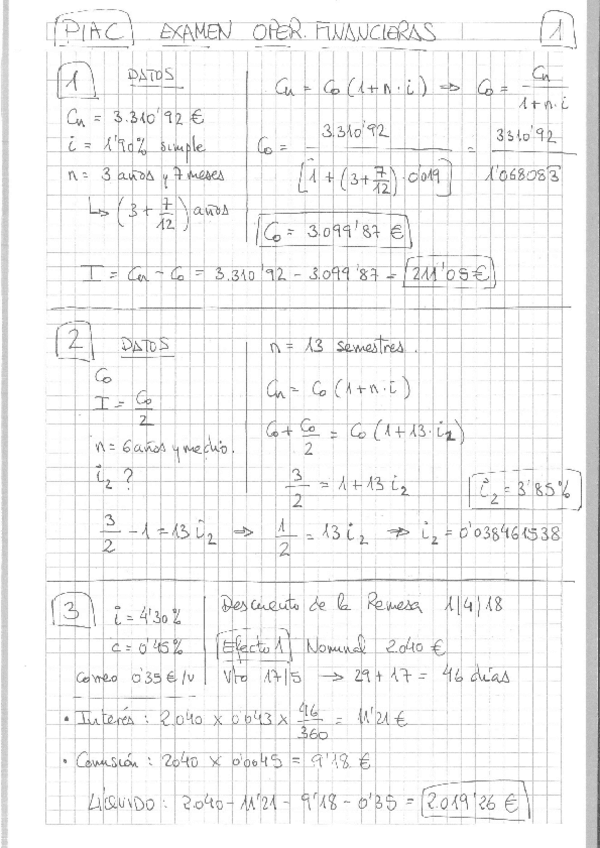 PIAC EXAMEN OPER. FINANCIERAS 1
1 DATOS
Cn = 3.310'92 €
i = 1'90% simple
n = 3 años y 7 meses
↳ (3 + 7/12) años
Cn = Co (1 + n · i) ⇒ Co = Cn / 1 + n · i
Co = 3.310'92 / [1 + (3 + 7/12) · 0'019] = 3310'92 / 1'068083
Co = 3.099'87 €
I = Cn - Co = 3.310'92 - 3.099'87 = 211'05 €
2 DATOS
Co
I = Co/2
n = 6 años y medio.
i2 ?
n = 13 semestres.
Cn = Co (1 + n · i)
Co + Co/2 = Co (1 + 13 · i2)
3/2 = 1 + 13 i2
i2 = 3'85%
3/2 - 1 = 13 i2 ⇒ 1/2 = 13 i2 ⇒ i2 = 0'038461538
3 i = 4'30%
c = 0'45%
correo 0'35 €/u
Descuento de la Remesa 1/4/18
Efecto 1 Nominal 2.040 €
Vto 17/5 → 29 + 17 = 46 días
• Interés : 2.040 × 0'043 × 46/360 = 11'21 €
• Comisión : 2040 × 0'0045 = 9'18 €
LÍQUIDO : 2.040 - 11'21 - 9'18 - 0'35 = 2.019'26 €